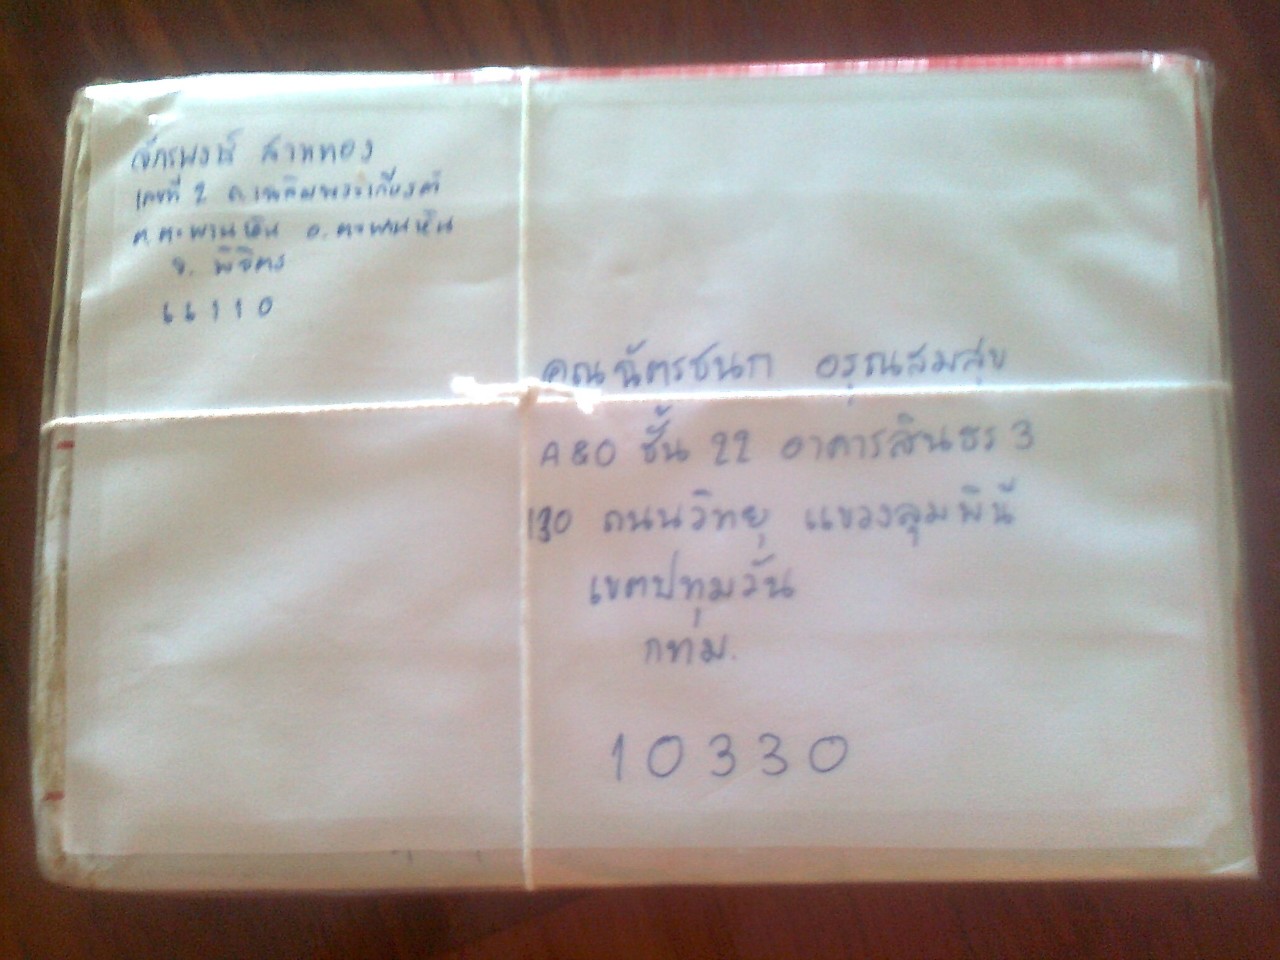 จักรพงษ์ สาททอง
เลขที่ 2 ถ.เฉลิมพระเกียรติ
ต.ตะพานหิน อ.ตะพานหิน
จ. พิจิตร
66110
คุณฉัตรชนก อรุณสมสุข
A&O ชั้น 22 อาคารสินธร 3
130 ถนนวิทยุ แขวงลุมพินี
เขตปทุมวัน
กทม.
10330